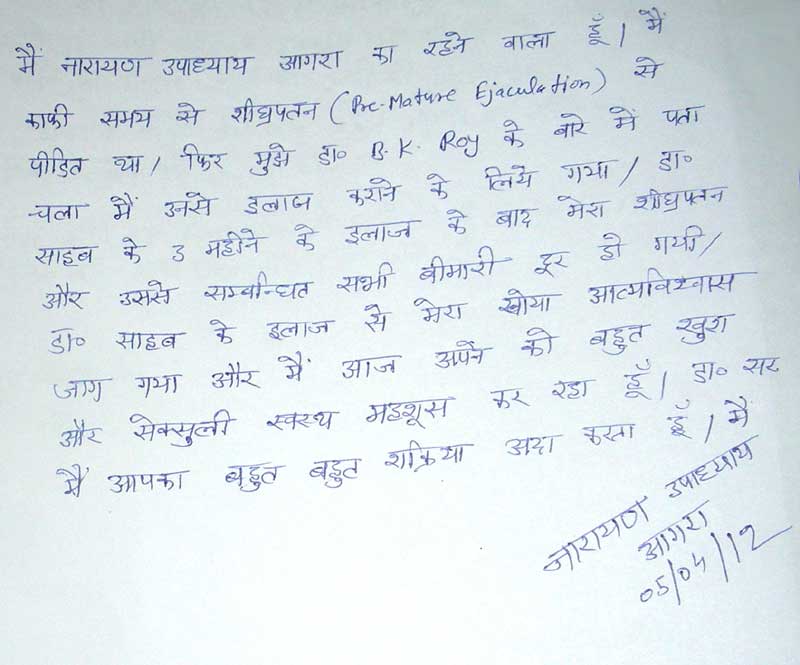 मैं नारायण उपाध्याय आगरा का रहने वाला हूँ। मैं
काफी समय से शीघ्रपतन (Pre-Mature Ejaculation) से
पीड़ित था। फिर मुझे डा॰ B.K. Roy के बारे में पता
चला मैं उनसे इलाज कराने के लिये गया। डा॰
साहब के 3 महीने के इलाज के बाद मेरा शीघ्रपतन
और उससे सम्बन्धित सभी बीमारी दूर हो गयी।
डा॰ साहब के इलाज से मेरा खोया आत्मविश्वास
जाग गया और मैं आज अपने को बहुत खुश
और सेक्सुली स्वस्थ महशूस कर रहा हूँ। डा॰ सर
मैं आपका बहुत बहुत शुक्रिया अदा करता हूँ। मैं
नारायण उपाध्याय
आगरा
05/04/12